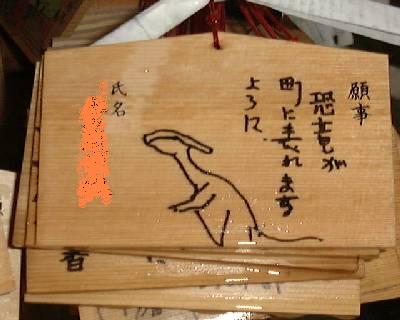 願事
恐竜が
町に表れます
よろに
氏名
香